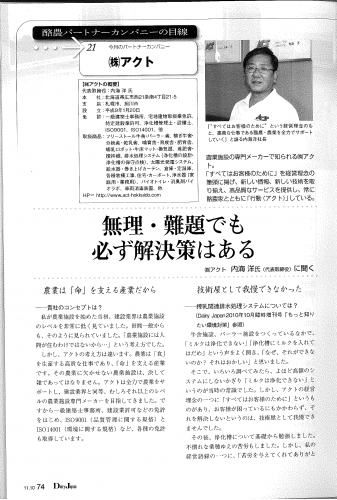 酪農パートナーカンパニーの目線
21
今月のパートナーカンパニー
㈱アクト
㈱アクトの概要
代表取締役：内海 洋 氏
本 社：北海道帯広市西21条南4丁目21-5
支 店：札幌市、旭川市
設 立：平成9年1月20日
ISO9001、ISO14001、他
HP＝http://www.act-hokkaido.com
「すべてはお客様のために」という経営理念のも
と、農業な仕事である酪農・農業を全力でサポート
していく」と語る内海洋社長
農業施設の専門メーカーで知られる㈱アク
ト。
「すべてはお客様のために」を経営理念の
筆頭に掲げ、新しい情報、新しい技術を取
り揃え、高品質なサービスを提供し、常に
酪農家とともに「行動（アクト）」している。
無理・難題でも
必ず解決策はある
㈱アクト 内海 洋氏（代表取締役）に聞く
農業は「命」を支える産業だから
――貴社のコンセプトは？
私が農業施設を始めた当初、建設業界は農業施設
のレベルを非常に低く見ていました。世間一般から
も、そのように見られていました。「農業施設には人
間が住むわけではないから…」という考え方でした。
しかし、アクトの考え方は違います。農業は「食」
を生産する高貴な仕事であり、「命」を支える産業
です。その農業に欠かせない農業施設は、決して
雑であってはなりません。アクトは全力で農業をサ
ポートし、建設業界と同等、むしろそれ以上のレベ
ルの農業施設専門メーカーを目指してきました。で
すから一級建築士事務所、建設業許可などの免許
をはじめ、ISO9001（品質管理に関する規格）と
ISO14001（環境に関する規格）など、各種の免許
も取得しています。
技術屋として我慢できなかった
――搾乳関連排水処理システムについては？
（Dairy Japan 2010年10月臨時増刊号『もっと知り
たい環境対策』参照）
牛舎施設、パーラー施設をつくっているなかで、
「ミルクは浄化できない」「浄化槽にミルクを入れて
はだめ」という声をよく聞き、「なぜ、それができな
いのか？ それはおかしい」と思いました。
そこで、いろいろ調べてみたら、よほど高額のシ
ステムにしないかぎり「ミルクは浄化できない」と
いうのが当時の常識でした。しかし、アクトの経営
理念の一つに「すべてはお客様のために」というも
のがあり、お客様が困っているにもかかわらず、そ
れを解決しないというのは、技術屋として我慢でき
ませんでした。
その後、浄化槽について基礎から勉強しました。
不慣れな業種ゆえの苦労もしました。しかし、私の
経営語録の一つに、「苦労を与えてくれてありがと
11.10 74 Dairy Japan